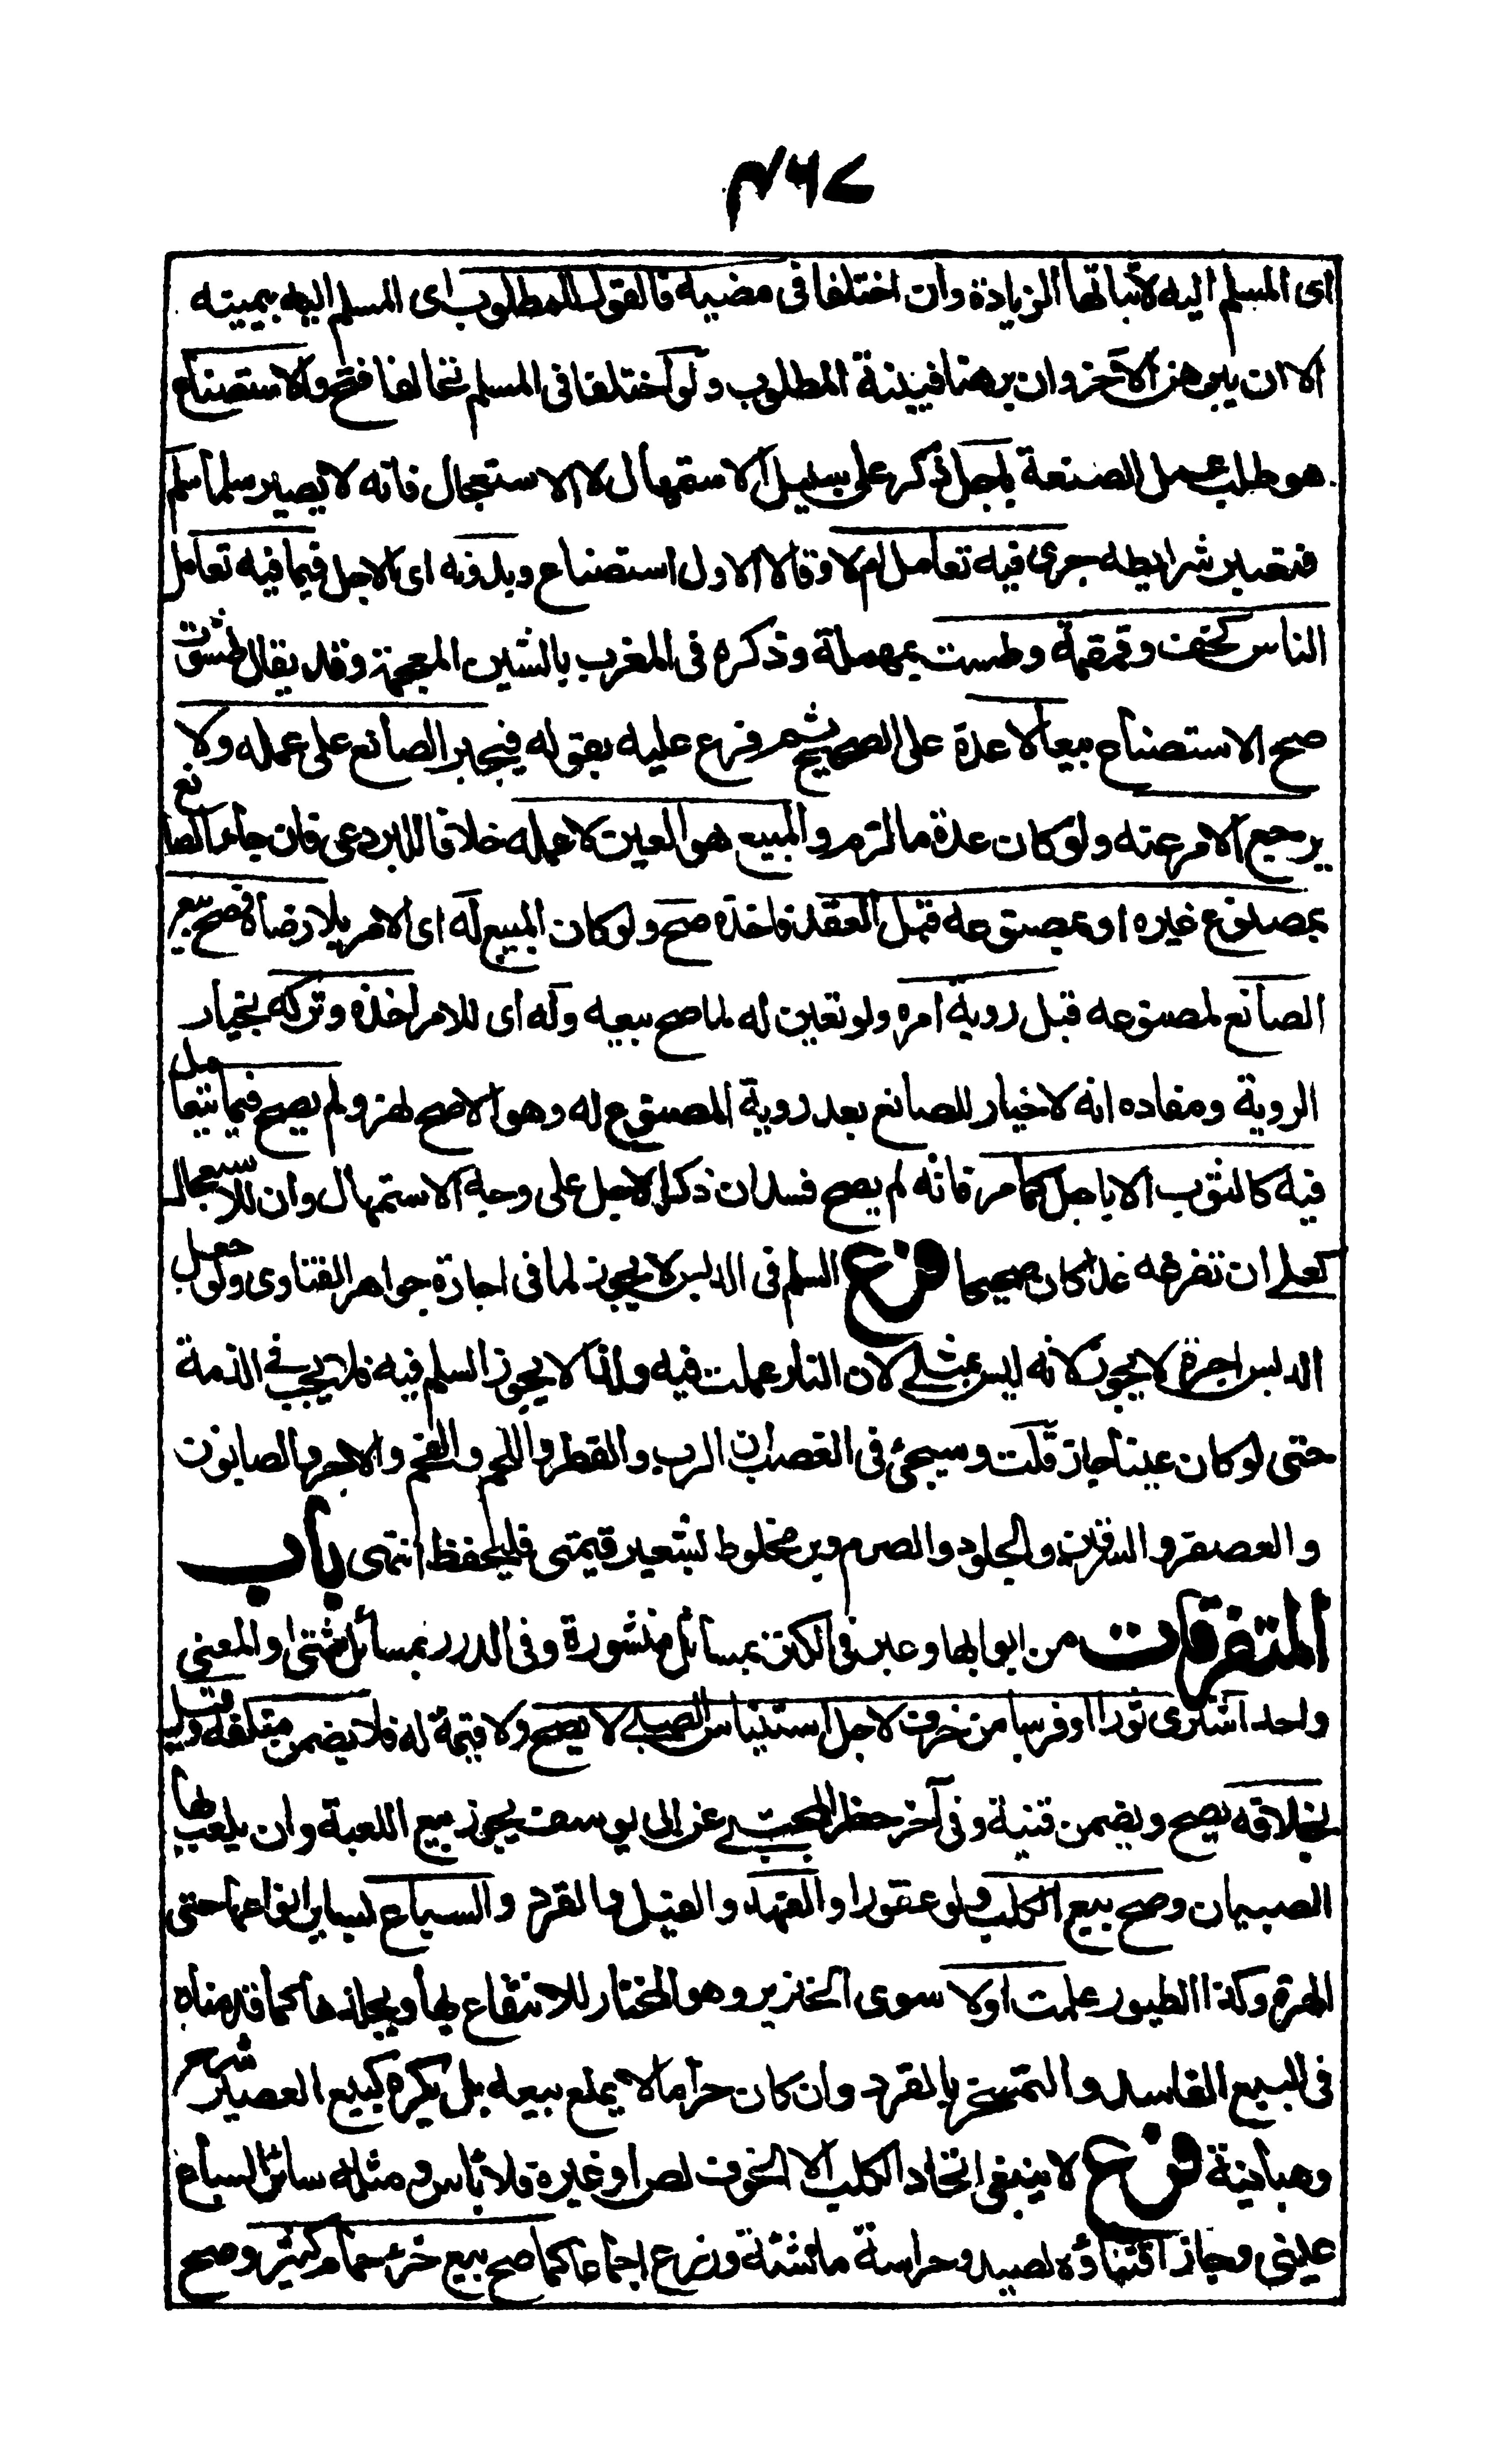 ٤٦٧
اى المسلم اليه لاثباتها الزيادة وان اختلفا فى مضيه فالقول للمطلوب اى المسلم اليه بيمينه
الا ان يبرهن الآخر وان برهنا فبينة المطلوب ولو اختلفا فى المسلم تحالفا فتح والاستصناع
هو طلب عمل الصنعة باجل ذكر على سبيل الاستمهال لا الاستعجال فانه لا يصير سلما سلم
فتعتبر شرايطه جرى فيه تعامل ام لا وقالا الاول استصناع وبدونه اى الاجل فيما فيه تعامل
الناس كخف وقمقمة وطست بمهملة وذكره فى المغرب بالشين المعجمة وقد يقال طشوت
صح الاستصناع بيعا لا عدة على الصحيح ثم فرع عليه بقوله فيجبر الصانع على عمله ولا
يرجع الامر عنه ولو كان عدة ما لزم والمبيع هو العين لا عمله خلافا للبردعى فان جاء الصانع
بمصنوع غيره او بمصنوعه قبل العقد فاخذه صح ولو كان المبيع له اى الامر بلا رضاه فصح بيع
الصانع لمصنوعه قبل روية امره ولو تعين له لما صح بيعه وله اى للامر اخذه وتركه بخيار
الروية ومفاده انه لا خيار للصانع بعد روية المصنوع له وهو الاصح نهر ولم يصح فيما يتعامل
فيه كالثوب الا باجل كما مر فانه لم يصح فسد ان ذكر الاجل على وجه الاستمهال وان للاستعجال
كعلى ان تفرغه غدا كان صحيحا فرع السلم فى الدبس لا يجوز لما فى اجارة جواهر الفتاوى ولو جعل
الدبس اجرة لا يجوز لانه ليس بمثلى لان النار عملت فيه ولذا لا يجوز السلم فيه فلا يجب فى الذمة
حتى لو كان عينا جاز قلت وسيجئ فى الغصب ان الرب والقطر واللحم والفحم والاجر والصابون
والعصفر والسرقين والجلود والصرم وبر مخلوط بشعير قيمتى فليحفظ انتهى باب
المتفرقات من ابوابها وعبر فى الكنز بمسائل منثورة وفى الدرر بمسائل شتى والمعنى
واحد اشترى ثورا او فرسا من خزف لاجل استيناس الصبى لا يصح ولا قيمة له فلا يضمن متلفه وقيل
بخلافه يصح ويضمن قنية وفى آخر حظر المجتبى عن ابى يوسف يجوز بيع اللعبة وان يلعب بها
الصبيان وصح بيع الكلب ولو عقورا والفهد والفيل والقرد والسباع بساير انواعها حتى
الهرة وكذا الطيور علمت اولا سوى الخنزير وهو المختار للانتفاع بها وبجلدها كما قدمناه
فى البيع الفاسد والتمسخر بالقرد وان كان حراما لا يمنع بيعه بل يكره كبيع العصير شرح
وهبانية فرع لا ينبغى اتخاذ الكلب الا لخوف لص او غيره فلا باس ومثله سائر السباع
عينى وجاز اقتناؤه لصيد وحراسة ماشية وزرع اجماعا كما صح بيع خرء حمام كثير وصح